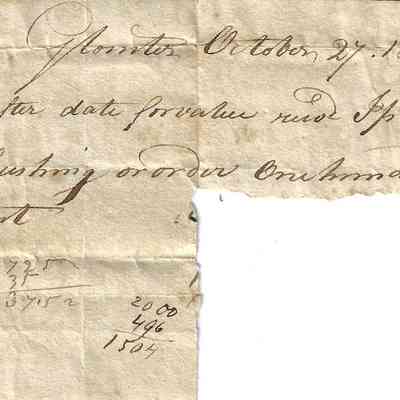 Glouster October 27. 18
fter date for value recd I p
ushing or order One hund
st
725
35
37.52
2000
496
1504